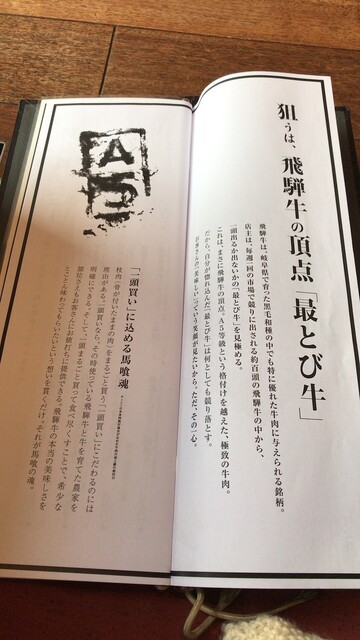 狙うは、飛騨牛の頂点「最とび牛」
飛騨牛は、岐阜県で育った黒毛和種の中でも特に優れた牛肉に与えられる銘柄。
店主は、毎週一回の市場で競りに出される約百頭の飛騨牛の中から、
一頭出るか出ないかの「最とび牛」を見極める。
これは、まさに飛騨牛の頂点、A5等級という格付けを越えた、極致の牛肉。
だから、自分が惚れ込んだ「最とび牛」は何としても競り落とす。
お客さんの「美味しい」っていう笑顔が見たいから。ただ、その一心。
A5
「一頭買い」に込める馬喰魂
枝肉（骨が付いたままの肉）をまるごと買う「一頭買い」にこだわるのには
理由がある。何故なら、その時使っている飛騨牛と牛を育てた農家を
明確にできる。そして一頭まるごと買って食べ尽くすことで、希少な
部位さえもお客さんにお値打ちに提供できる。飛騨牛の本当の美味しさを
とことん味わってもらいたいという想いを貫くだけ。それが馬喰の魂。